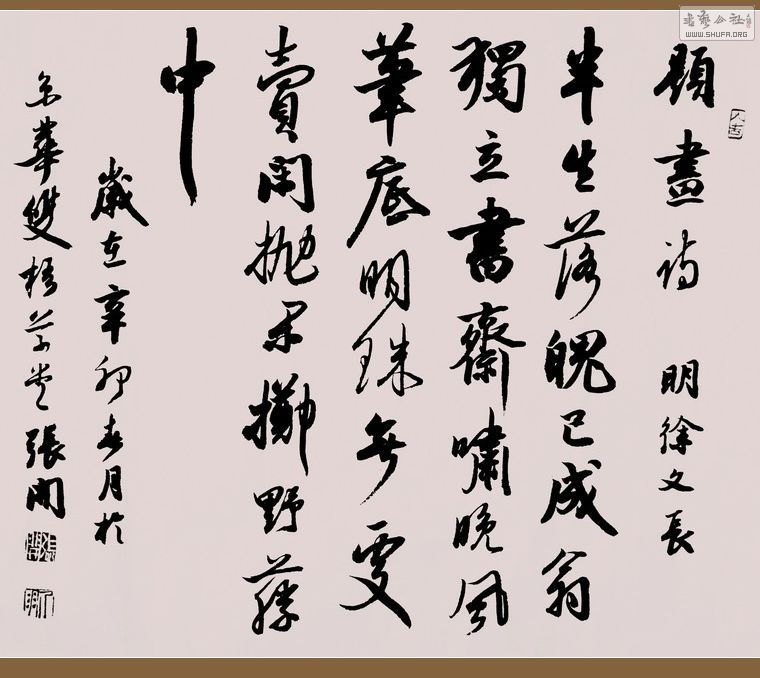 書藝公社
WWW.SHUFA.ORG
題畫詩 明徐文長
半生落魄已成翁
獨立書齋嘯晚風
筆底明珠無處
賣閑拋閑擲野藤
中
歲在辛卯春月於
京華雙梧草堂張開